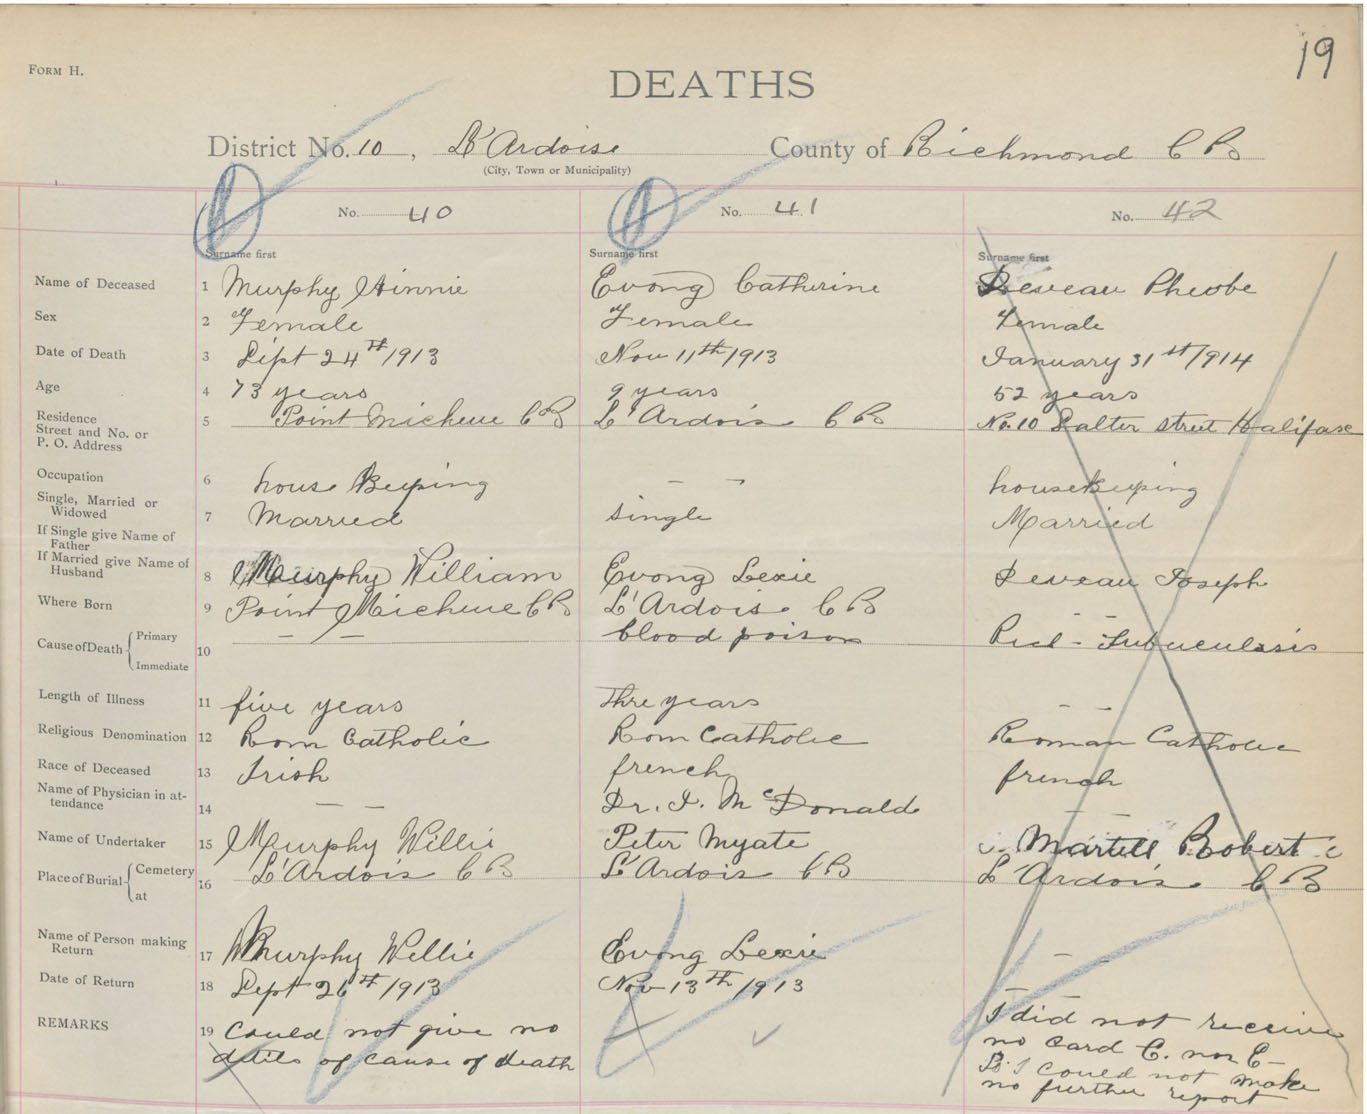 19
FORM H.
DEATHS
District No. 10, L'Ardoise County of Richmond C B
(City, Town or Municipality)
No. 40 No. 41 No. 42
Surname first Surname first Surname first
Name of Deceased 1 Murphy Winnie Evong Catherine Deveau Pheobe
Sex 2 Female Female Female
Date of Death 3 Sept 24th/1913 Nov 11th/1913 January 31st/1914
Age 4 73 years 9 years 52 years
Residence
Street and No. or
P. O. Address 5 Point Micheue C B L'Ardois C B No. 10 Salter street Halifax
Occupation 6 house Keeping — — houseKeeping
Single, Married or
Widowed 7 Married single Married
If Single give Name of
Father
If Married give Name of
Husband 8 Murphy William Evong Lexie Deveau Joseph
Where Born 9 Point Micheue C B L'Ardois C B — —
Cause of Death { Primary
Immediate 10 — — blood poison Tubuculosis
Length of Illness 11 five years Thre years — —
Religious Denomination 12 Rom Catholic Rom Catholic Roman Catholic
Race of Deceased 13 Irish french french
Name of Physician in at-
tendance 14 — — Dr. I. McDonald — —
Name of Undertaker 15 Murphy Willie Peter Myate Martell Robert
Place of Burial { Cemetery
at 16 L'Ardois C B L'Ardois C B L'Ardois C B
Name of Person making
Return 17 Murphy Willie Evong Lexie — —
Date of Return 18 Sept 26th/1913 Nov 13th/1913 — —
REMARKS 19 Could not give no
ditils of cause of death
I did not receive
no card C. nor E—
So I could not make
no further report